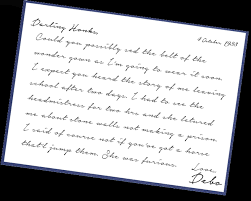 Darling Honks,
Could you possibly send the belt of the
wonder gown as I'm going to wear it soon
I expect you heard the story of me leaving
school after two days. I had to see the
headmistress for two hrs and she lectured
me about stone walls not making a prison
I said of course not if you've got a horse
that'll jump them. She was furious.
Love,
Debo